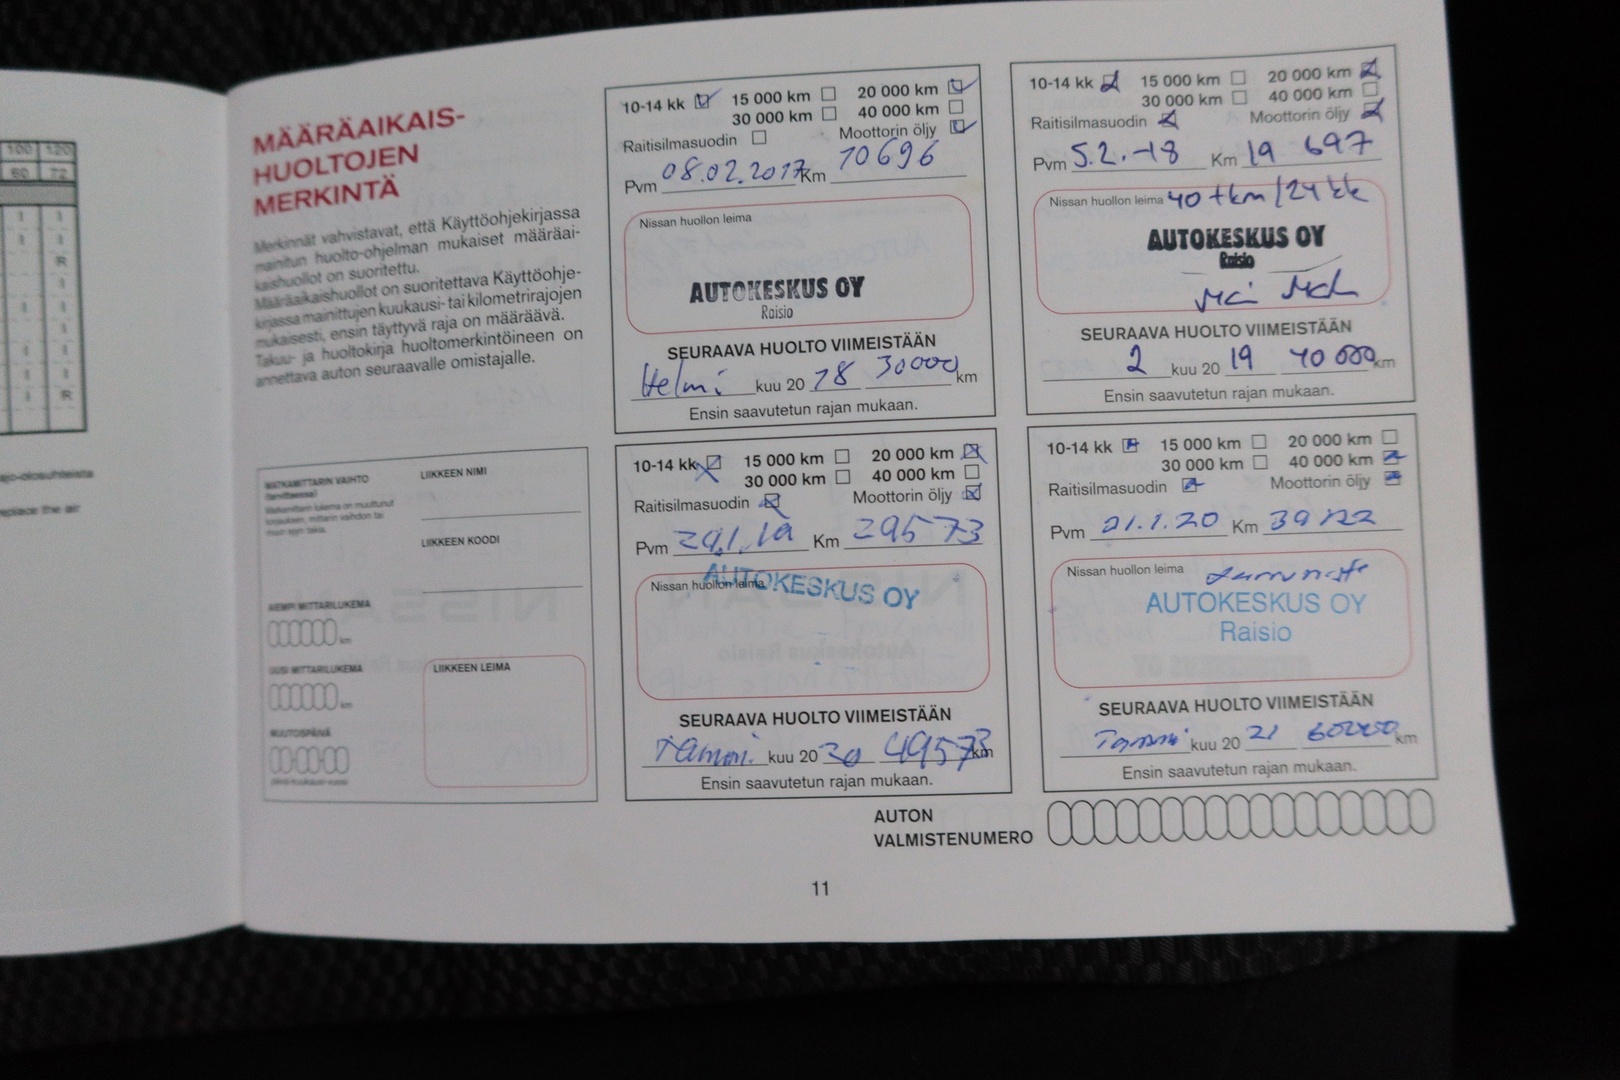 100 120
60 72
I I
I I
R
I
I I
I I
I I
I R
MÄÄRÄAIKAIS-
HUOLTOJEN
MERKINTÄ
Merkinnät vahvistavat, että Käyttöohjekirjassa
mainitun huolto-ohjelman mukaiset määräai-
kaishuollot on suoritettu.
Määräaikaishuollot on suoritettava Käyttöohje-
kirjassa mainittujen kuukausi- tai kilometrirajojen
mukaisesti, ensin täyttyvä raja on määräävä.
Takuu- ja huoltokirja huoltomerkintöineen on
annettava auton seuraavalle omistajalle.
MATKAMITTARIN VAIHTO
(tarvittaessa)
LIIKKEEN NIMI
LIIKKEEN KOODI
AIEMPI MITTARILUKEMA
km
UUSI MITTARILUKEMA
km
MUUTOSPÄIVÄ
LIIKKEEN LEIMA
10-14 kk 15 000 km 20 000 km
30 000 km 40 000 km
Raitisilmasuodin Moottorin öljy
Pvm 08.02.2017 Km 10696
Nissan huollon leima
AUTOKESKUS OY
Raisio
SEURAAVA HUOLTO VIIMEISTÄÄN
Helmi kuu 20 18 30000 km
Ensin saavutetun rajan mukaan.
10-14 kk 15 000 km 20 000 km
30 000 km 40 000 km
Raitisilmasuodin Moottorin öljy
Pvm 5.2.-18 Km 19 697
Nissan huollon leima 40 tkm/24 kk
AUTOKESKUS OY
Raisio
SEURAAVA HUOLTO VIIMEISTÄÄN
2 kuu 20 19 40 000 km
Ensin saavutetun rajan mukaan.
10-14 kk 15 000 km 20 000 km
30 000 km 40 000 km
Raitisilmasuodin Moottorin öljy
Pvm Km 29573
Nissan huollon leima
AUTOKESKUS OY
SEURAAVA HUOLTO VIIMEISTÄÄN
Tammi kuu 20 20 49573 km
Ensin saavutetun rajan mukaan.
10-14 kk 15 000 km 20 000 km
30 000 km 40 000 km
Raitisilmasuodin Moottorin öljy
Pvm 21.1.20 Km
Nissan huollon leima
AUTOKESKUS OY
Raisio
SEURAAVA HUOLTO VIIMEISTÄÄN
Tammi kuu 20 21 60000 km
Ensin saavutetun rajan mukaan.
AUTON
VALMISTENUMERO
11